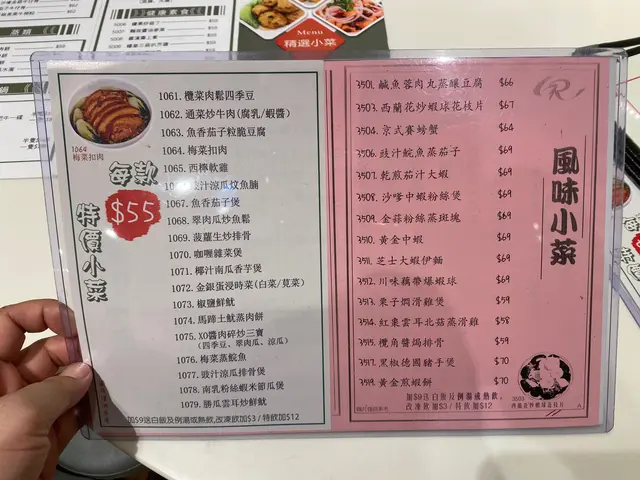 Menu
精選小菜
健康素食
1064
梅菜扣肉
每款
$55
特價小菜
1061. 欖菜肉鬆四季豆
1062. 通菜炒牛肉(腐乳/蝦醬)
1063. 魚香茄子粒脆豆腐
1064. 梅菜扣肉
1065. 西檸軟雞
豉汁涼瓜炆魚腩
1067. 魚香茄子煲
1068. 翠肉瓜炒魚鬆
1069. 菠蘿生炒排骨
1070. 咖喱雜菜煲
1071. 椰汁南瓜香芋煲
1072. 金銀蛋浸時菜(白菜/莧菜)
1073. 椒鹽鮮魷
1074. 馬蹄土魷蒸肉餅
1075. XO醬肉碎炒三寶
(四季豆、翠肉瓜、涼瓜)
1076. 梅菜蒸鯇魚
1077. 豉汁涼瓜排骨煲
1078. 南乳粉絲蝦米節瓜煲
1079. 勝瓜雲耳炒鮮魷
加$9送白飯及例湯或熱飲,改凍飲加$3 / 特飲加$12
風味小菜
3501. 鹹魚蓉肉丸蒸釀豆腐 $66
3503. 西蘭花炒蝦球花枝片 $67
3504. 京式賽螃蟹 $64
3506. 豉汁鯇魚蒸茄子 $69
3507. 乾煎茄汁大蝦 $69
3508. 沙嗲中蝦粉絲煲 $69
3509. 金蒜粉絲蒸斑塊 $69
3510. 黃金中蝦 $69
3511. 芝士大蝦伊麵 $69
3512. 川味藕帶爆蝦球 $69
3513. 栗子燜滑雞煲 $59
3514. 紅棗雲耳北菇蒸滑雞 $58
3515. 欖角醬焗排骨 $59
3517. 黑椒德國豬手煲 $70
3519. 黃金煎蝦餅 $70
加$9送白飯及例湯或熱飲,
改凍飲加$3 / 特飲加$12
3503
西蘭花炒蝦球花枝片